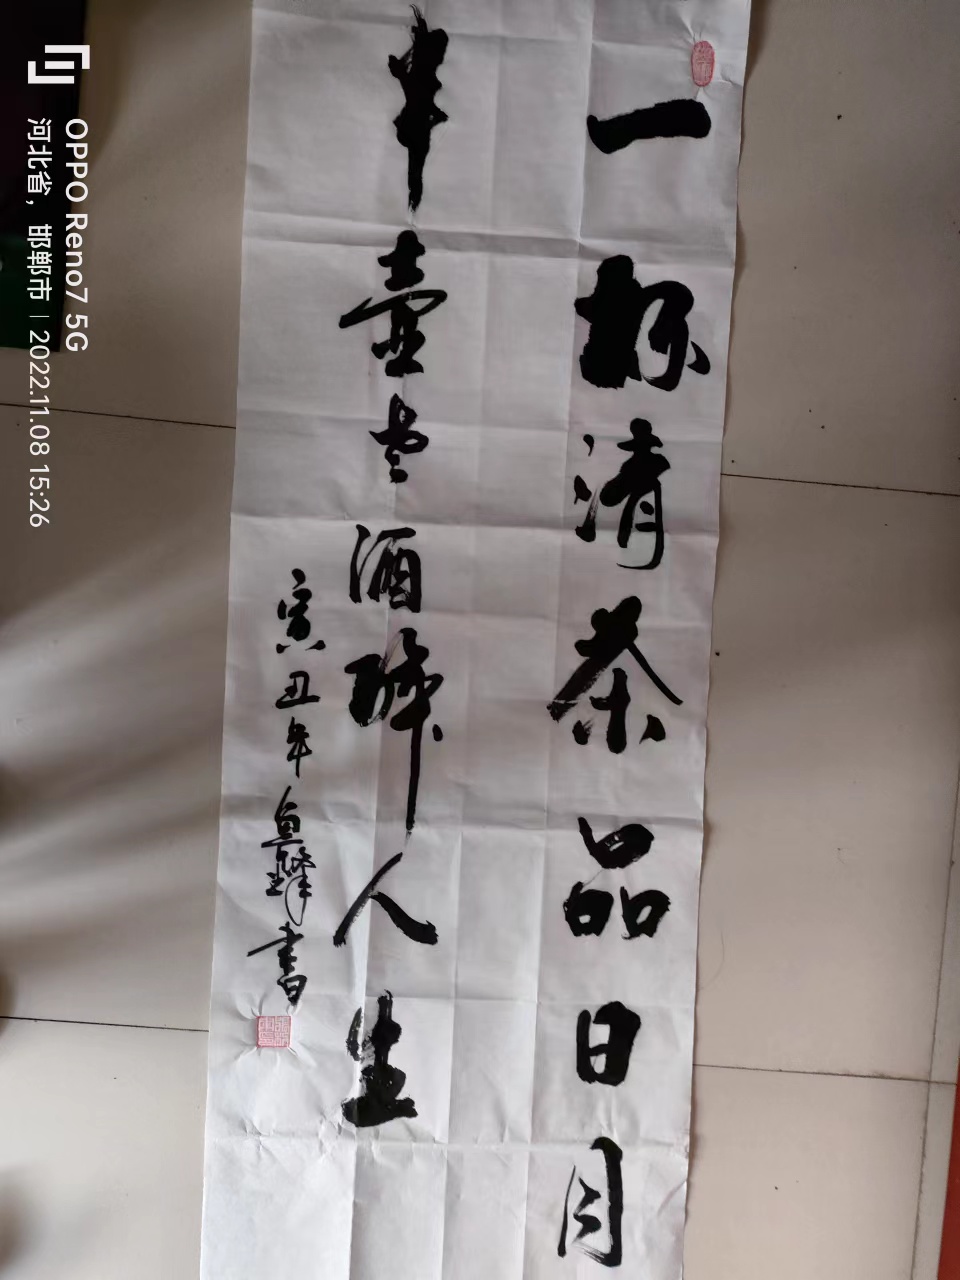 一杯清茶品日月
半壶老酒醉人生
寅丑年
書
OPPO Reno7 5G
河北省，邯郸市 | 2022.11.08 15:26